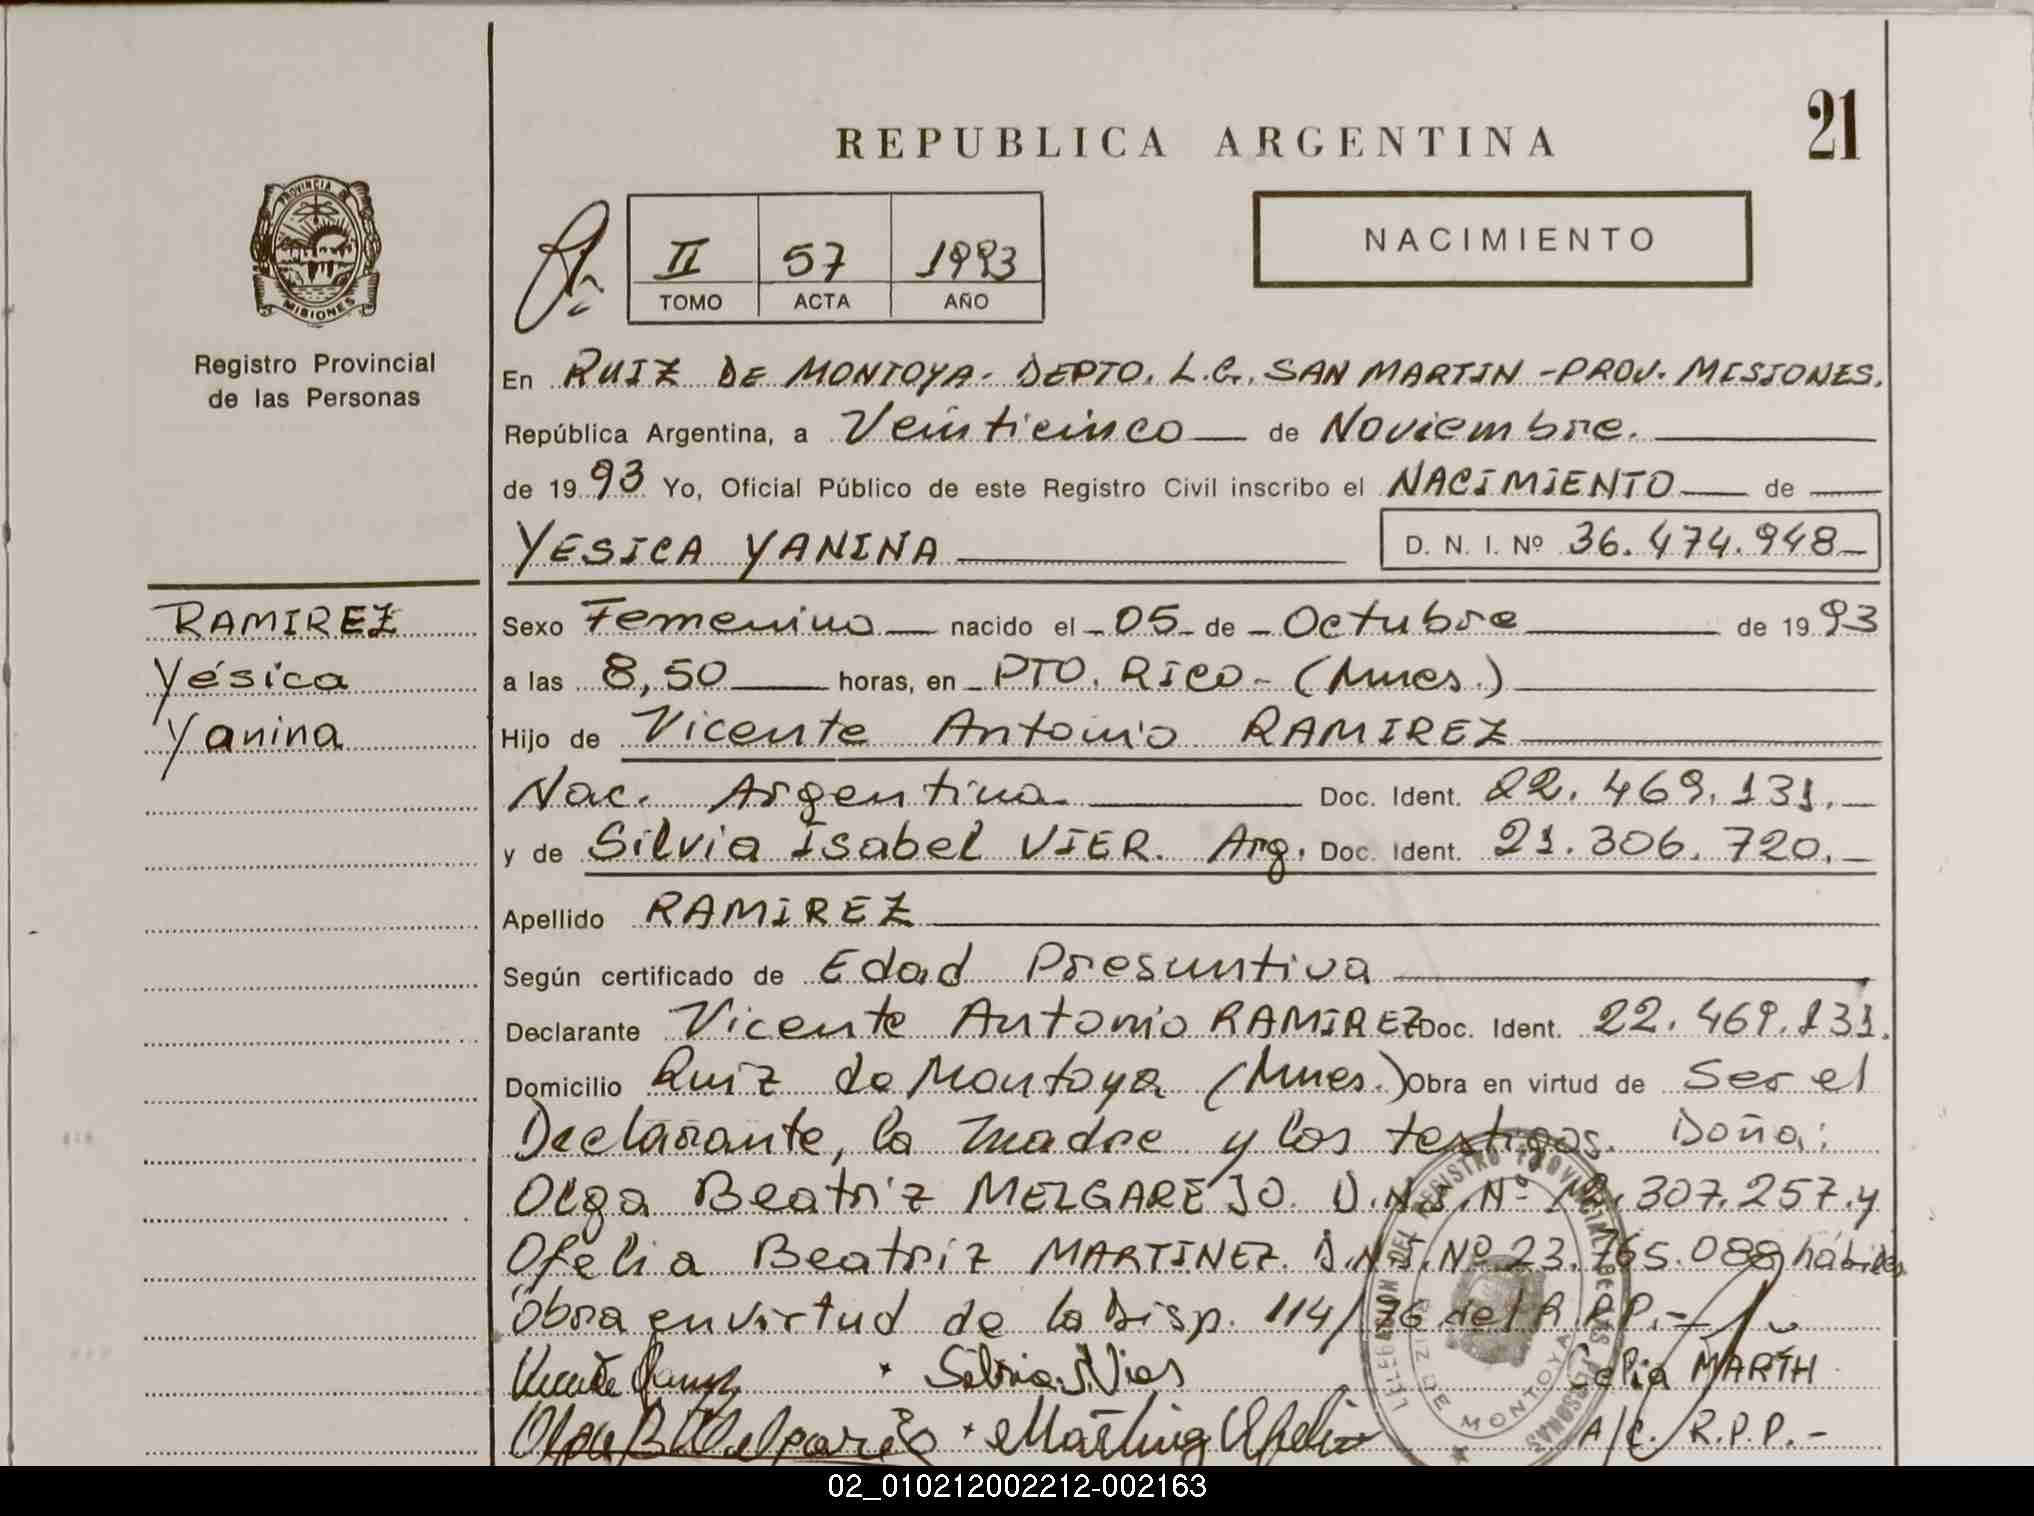 REPUBLICA ARGENTINA
21
PROVINCIA DE
MISIONES
Registro Provincial
de las Personas
II 57 1993
TOMO ACTA AÑO
NACIMIENTO
En RUIZ DE MONTOYA- DEPTO. L.G. SAN MARTIN -PROV. MISIONES.
República Argentina, a Veinticinco de Noviembre.
de 19 93 Yo, Oficial Público de este Registro Civil inscribo el NACIMIENTO de
YESICA YANINA D. N. I. Nº 36.474.948
RAMIREZ
Yésica
Yanina
Sexo Femenino nacido el 05 de Octubre de 19 93
a las 8,50 horas, en PTO. RICO - (Mnes.)
Hijo de Vicente Antonio RAMIREZ
Nac. Argentina Doc. Ident. 22.469.131.
y de Silvia Isabel VIER. Arg. Doc. Ident. 21.306.720.
Apellido RAMIREZ
Según certificado de Edad Presuntiva
Declarante Vicente Antonio RAMIREZ Doc. Ident. 22.469.131.
Domicilio Ruiz de Montoya (Mnes.) Obra en virtud de Ser el
Declarante, la madre y los testigos. Doña:
Olga Beatriz MELGAREJO. D.N.I. Nº 307.257. y
Ofelia Beatriz MARTINEZ. D.N.I. Nº 23.765.088 hábiles
Obra en virtud de la Disp. 114/76 del R.P.P.-
Silvia I. Vier
Celia MARTH
A/C. R.P.P.-
DELEGACION DEL REGISTRO PROVINCIAL DE LAS PERSONAS
RUIZ DE MONTOYA
02_010212002212-002163